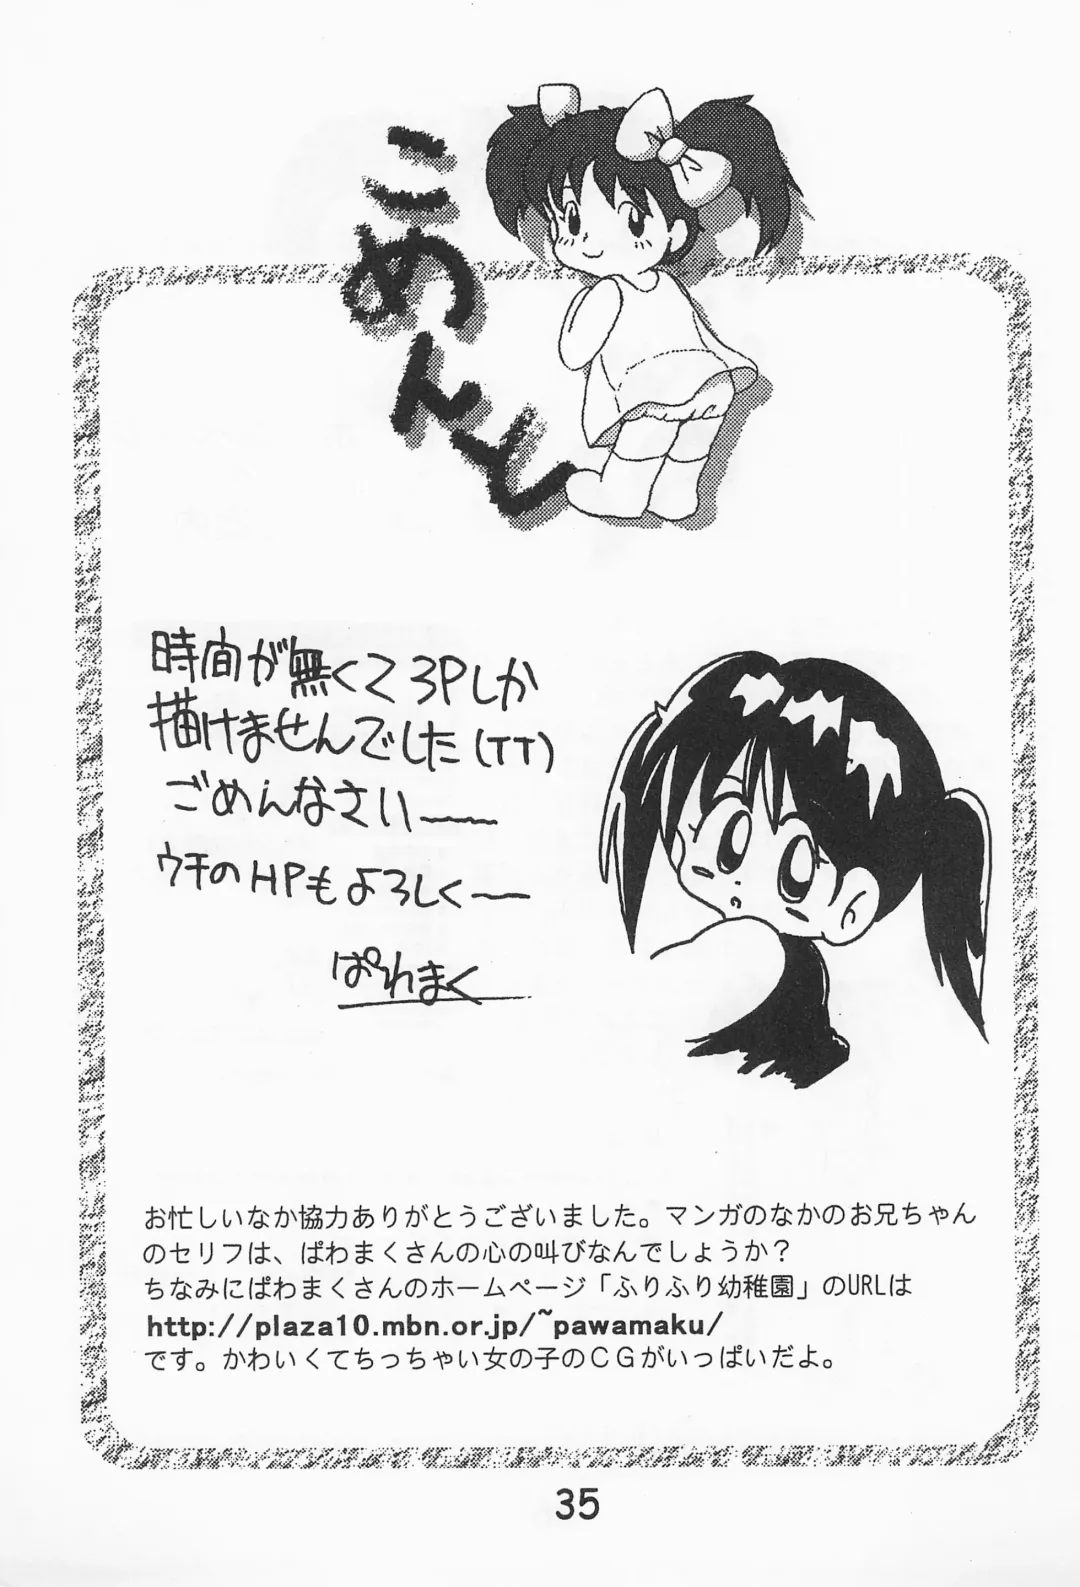 こめんと
時間が無くて3Pしか
描けませんでした(TT)
ごめんなさい――
ウチのHPもよろしく――
ぱわまく
お忙しいなか協力ありがとうございました。マンガのなかのお兄ちゃん
のセリフは、ぱわまくさんの心の叫びなんでしょうか?
ちなみにぱわまくさんのホームページ「ふりふり幼稚園」のURLは
http://plaza10.mbn.or.jp/~pawamaku/
です。かわいくてちっちゃい女の子のCGがいっぱいだよ。
35